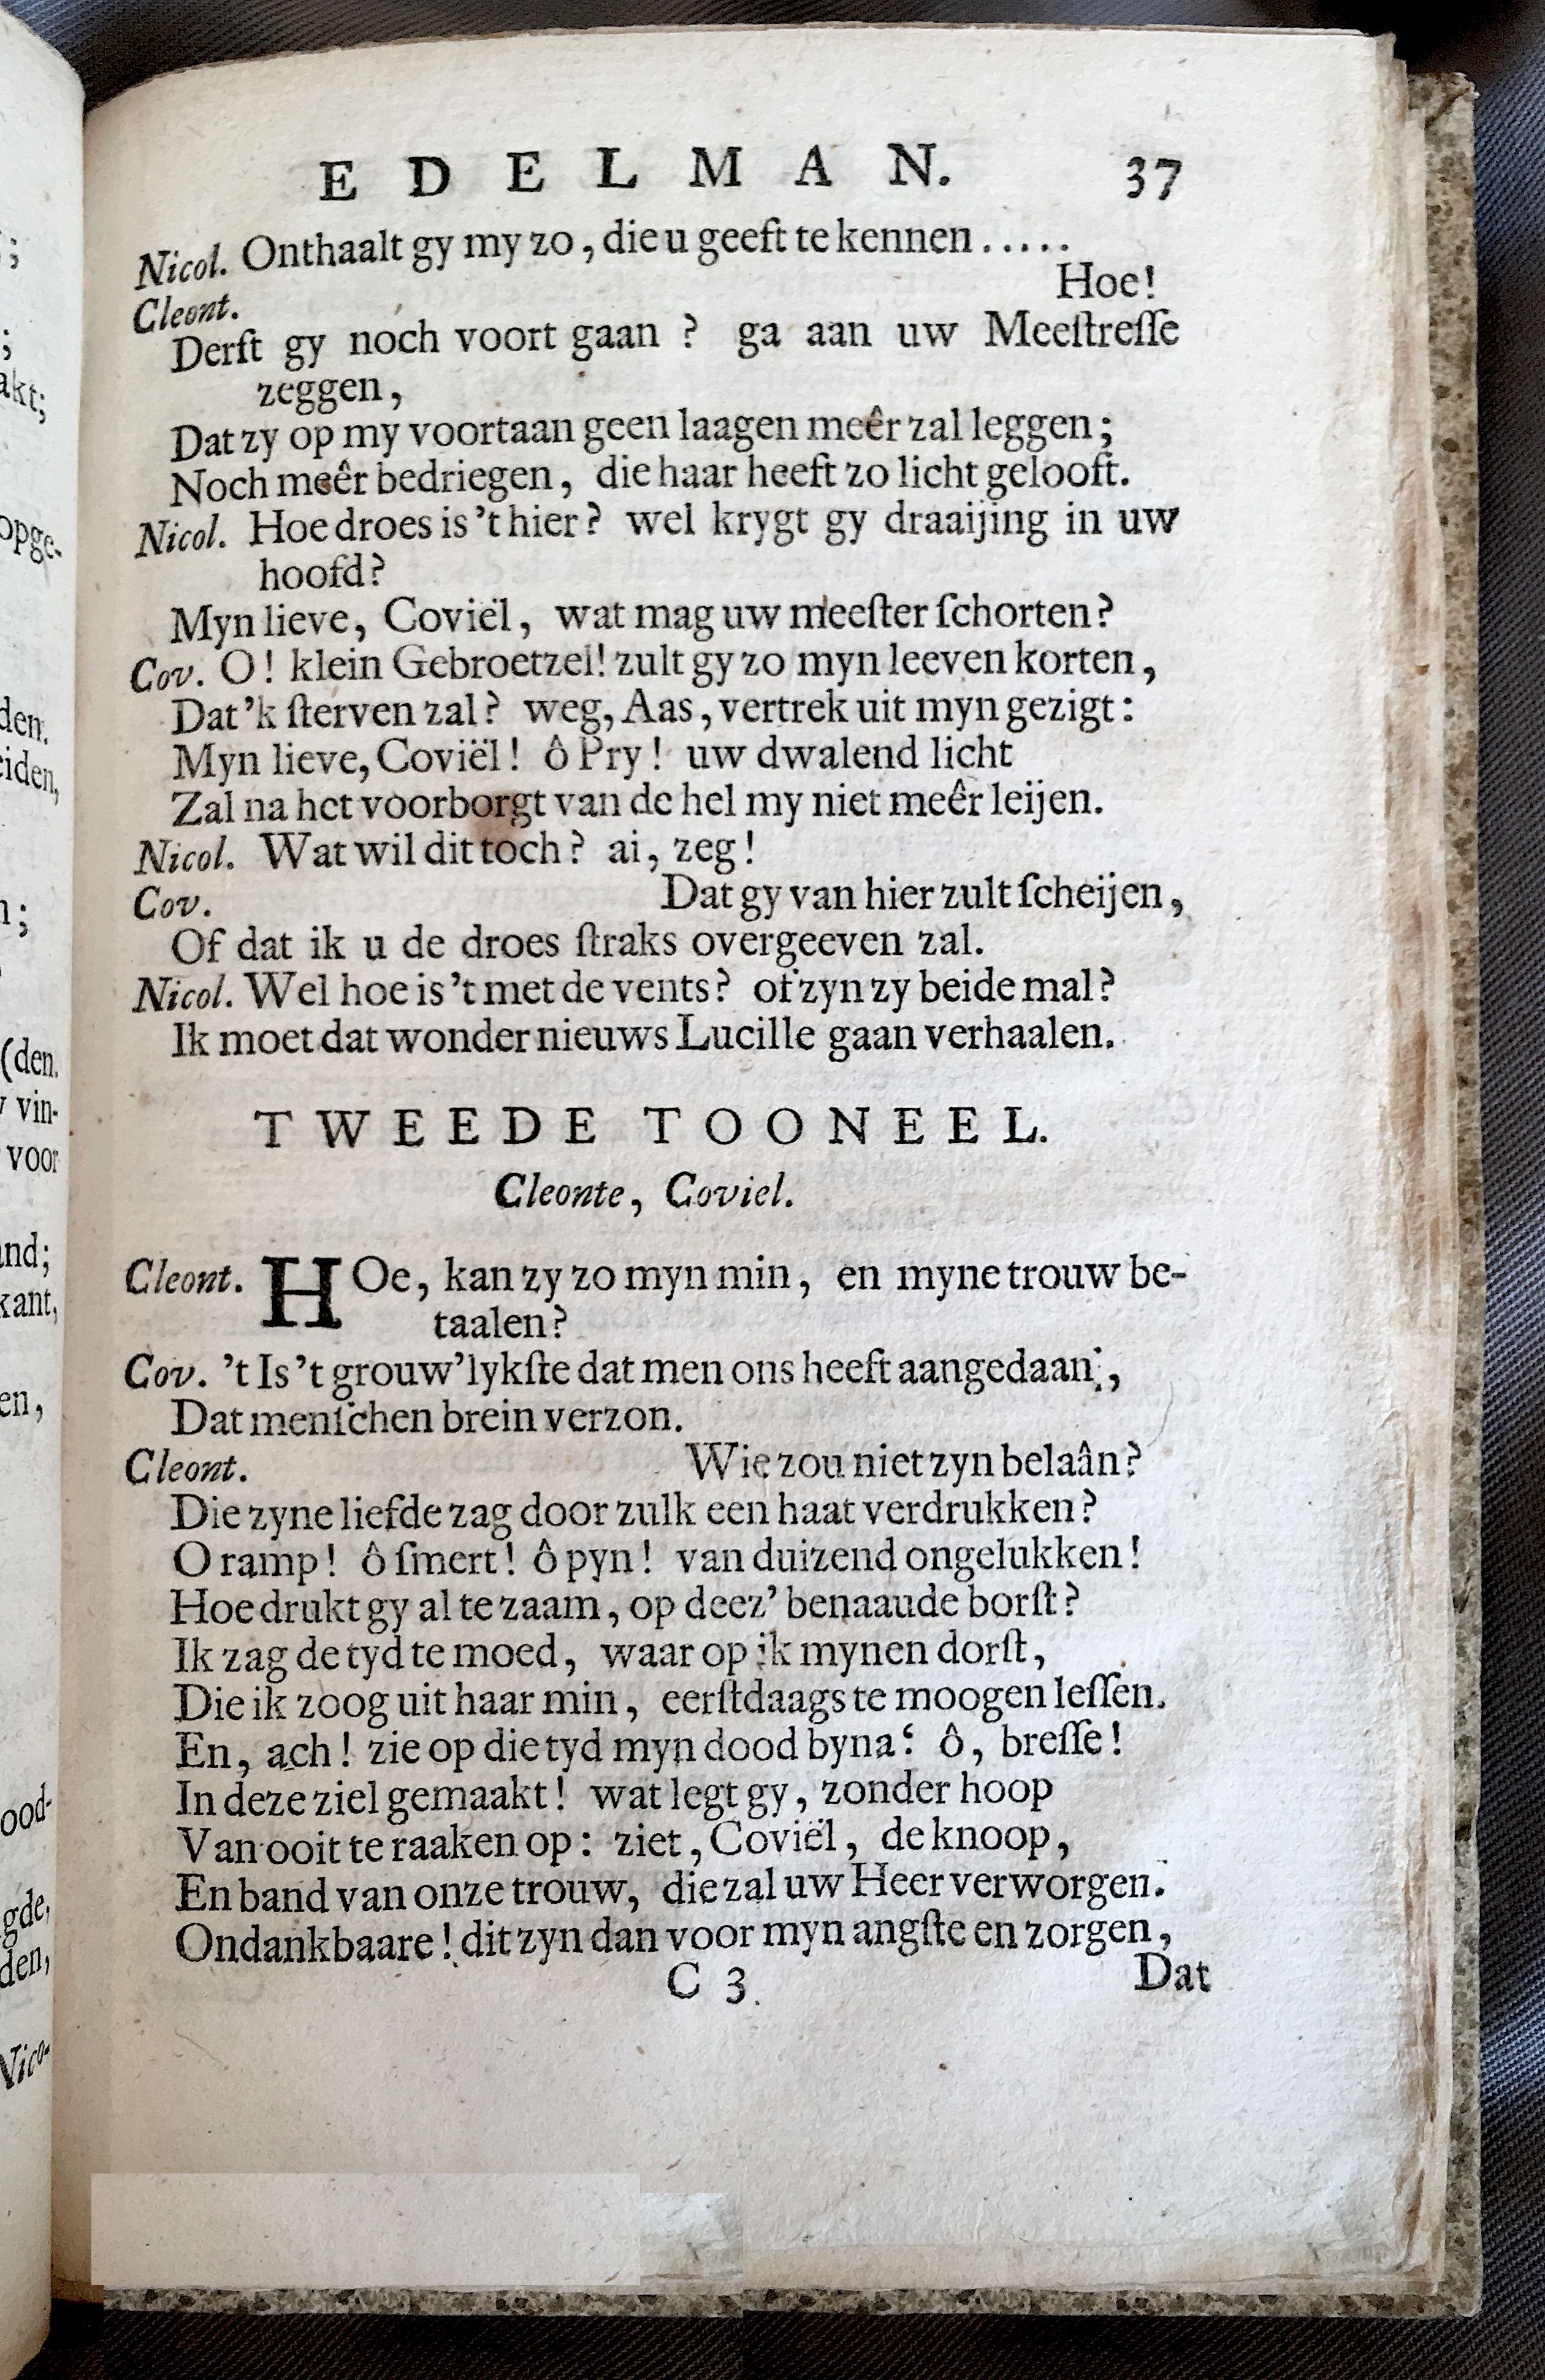 EDELMAN. 37
Nicol. Onthaalt gy my zo, die u geeft te kennen.....
Cleont. Hoe!
Derſt gy noch voort gaan ? ga aan uw Meeſtreſſe
zeggen,
Dat zy op my voortaan geen laagen meêr zal leggen;
Noch meêr bedriegen, die haar heeft zo licht gelooft.
Nicol. Hoe droes is 't hier? wel krygt gy draaijing in uw
hoofd?
Myn lieve, Coviël, wat mag uw meeſter ſchorten?
Cov. O! klein Gebroetzel! zult gy zo myn leeven korten,
Dat 'k ſterven zal? weg, Aas, vertrek uit myn gezigt:
Myn lieve, Coviël! ô Pry! uw dwalend licht
Zal na het voorborgt van de hel my niet meêr leijen.
Nicol. Wat wil dit toch? ai, zeg!
Cov. Dat gy van hier zult ſcheijen,
Of dat ik u de droes ſtraks overgeeven zal.
Nicol. Wel hoe is 't met de vents? of zyn zy beide mal?
Ik moet dat wonder nieuws Lucille gaan verhaalen.
TWEEDE TOONEEL.
Cleonte, Coviel.
Cleont. HOe, kan zy zo myn min, en myne trouw be-
taalen?
Cov. 't Is 't grouw'lykſte dat men ons heeft aangedaan,
Dat menſchen brein verzon.
Cleont. Wie zou niet zyn belaân?
Die zyne liefde zag door zulk een haat verdrukken?
O ramp! ô ſmert! ô pyn! van duizend ongelukken!
Hoe drukt gy al te zaam, op deez' benaaude borſt?
Ik zag de tyd te moed, waar op ik mynen dorſt,
Die ik zoog uit haar min, eerſtdaags te moogen leſſen.
En, ach! zie op die tyd myn dood byna: ô, breſſe!
In deze ziel gemaakt! wat legt gy, zonder hoop
Van ooit te raaken op: ziet, Coviël, de knoop,
En band van onze trouw, die zal uw Heer verworgen.
Ondankbaare! dit zyn dan voor myn angſte en zorgen,
C 3. Dat